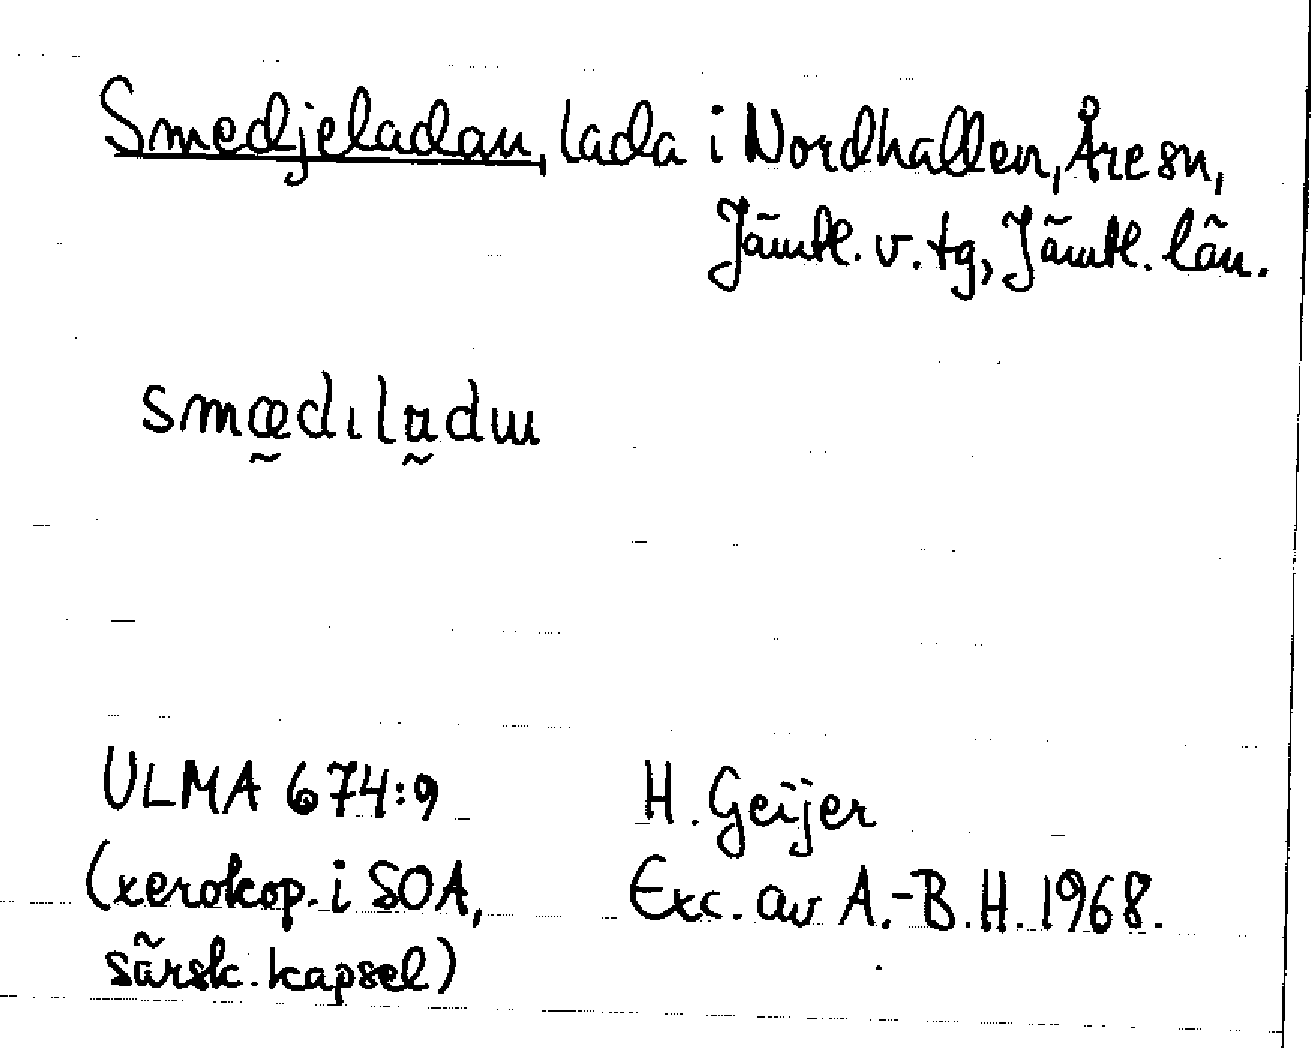 Smedjeladan, lada i Nordhallen, Åre sn,
Jämtl. v. tg, Jämtl. län.
smæ̰dıla̰dɯ
ULMA 674:9 H. Geijer
(xerokop. i SOA, Exc. av A.-B. H. 1968.
särsk. kapsel)